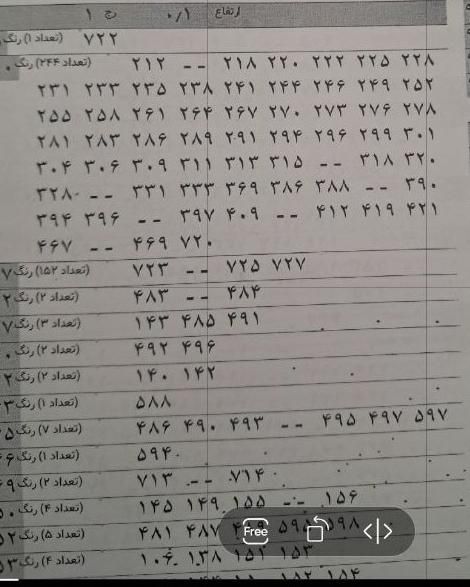 ارتفاع ۰/۱ رج ۱
(تعداد ۱) رنگ ۷۲۲
(تعداد ۲۴۴) رنگ ۲۱۲ -- ۲۱۸ ۲۲۰ ۲۲۲ ۲۲۵ ۲۲۸
۲۳۱ ۲۳۳ ۲۳۵ ۲۳۸ ۲۴۱ ۲۴۴ ۲۴۶ ۲۴۹ ۲۵۲
۲۵۵ ۲۵۸ ۲۶۱ ۲۶۴ ۲۶۷ ۲۷۰ ۲۷۳ ۲۷۶ ۲۷۸
۲۸۱ ۲۸۳ ۲۸۶ ۲۸۹ ۲۹۱ ۲۹۴ ۲۹۶ ۲۹۹ ۳۰۱
۳۰۴ ۳۰۶ ۳۰۹ ۳۱۱ ۳۱۳ ۳۱۵ -- ۳۱۸ ۳۲۰
۳۲۸ -- ۳۳۱ ۳۳۳ ۳۶۹ ۳۸۶ ۳۸۸ -- ۳۹۰
۳۹۴ ۳۹۶ -- ۳۹۷ ۴۰۹ -- ۴۱۲ ۴۱۹ ۴۲۱
۴۶۷ -- ۴۶۹ ۷۲۰
(تعداد ۱۵۲) رنگ ۷ ۷۲۳ -- ۷۲۵ ۷۲۷
(تعداد ۲) رنگ ۲ ۴۸۳ -- ۴۸۴
(تعداد ۳) رنگ ۷ ۱۴۳ ۴۸۵ ۴۹۱
(تعداد ۲) رنگ ۴۹۲ ۴۹۶
(تعداد ۲) رنگ ۲ ۱۴۰ ۱۴۲
(تعداد ۱) رنگ ۳ ۵۸۸
(تعداد ۷) رنگ ۵ ۴۸۶ ۴۹۰ ۴۹۳ -- ۴۹۵ ۴۹۷ ۵۹۷
(تعداد ۱) رنگ ۶ ۵۹۴
(تعداد ۲) رنگ ۹ ۷۱۳ -- ۷۱۴
(تعداد ۴) رنگ ۵۰ ۱۴۵ ۱۴۹ ۱۵۵ -- ۱۵۶
(تعداد ۵) رنگ ۵۲ ۴۸۱ ۴۸۷ ۵۹۸
(تعداد ۴) رنگ ۵۳ ۱۰۶ ۱۳۸ ۱۵۲ ۱۵۳
Free